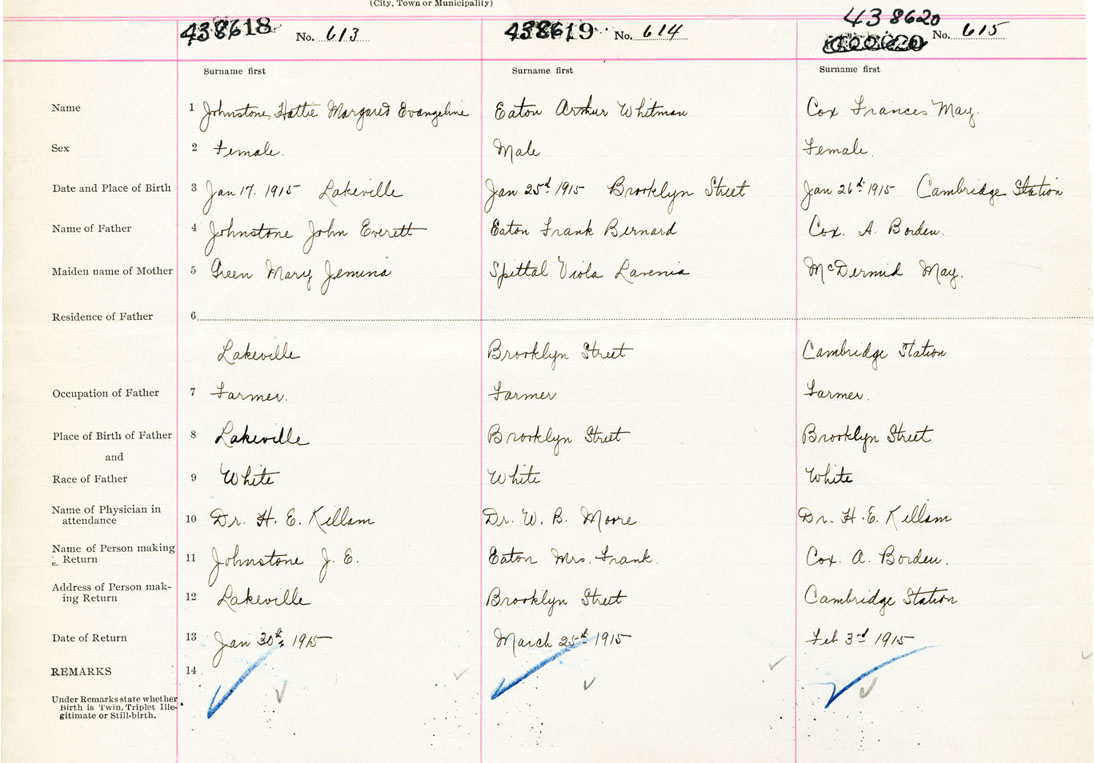 (City, Town or Municipality)
438618 No. 613 438619 No. 614 438620 No. 615
Surname first Surname first Surname first
Name 1 Johnstone Hattie Margaret Evangeline Eaton Arthur Whitman Cox Frances May.
Sex 2 Female. Male Female.
Date and Place of Birth 3 Jan 17. 1915 Lakeville Jan 25th 1915 Brooklyn Street Jan 26th 1915 Cambridge Station
Name of Father 4 Johnstone John Everett Eaton Frank Bernard Cox. A. Borden.
Maiden name of Mother 5 Green Mary Jemina Spittal Viola Lavenia McDermid May.
Residence of Father 6
Lakeville Brooklyn Street Cambridge Station
Occupation of Father 7 Farmer. Farmer Farmer.
Place of Birth of Father 8 Lakeville Brooklyn Street Brooklyn Street
and
Race of Father 9 White White White
Name of Physician in
attendance 10 Dr. H. E. Killam Dr. W. B. Moore Dr. H. E. Killam
Name of Person making
Return 11 Johnstone J. E. Eaton Mrs. Frank. Cox. A. Borden.
Address of Person mak-
ing Return 12 Lakeville Brooklyn Street Cambridge Station
Date of Return 13 Jan 30th 1915 March 25th 1915 Feb 3rd 1915
REMARKS 14
Under Remarks state whether
Birth is Twin, Triplet Ille-
gitimate or Still-birth.